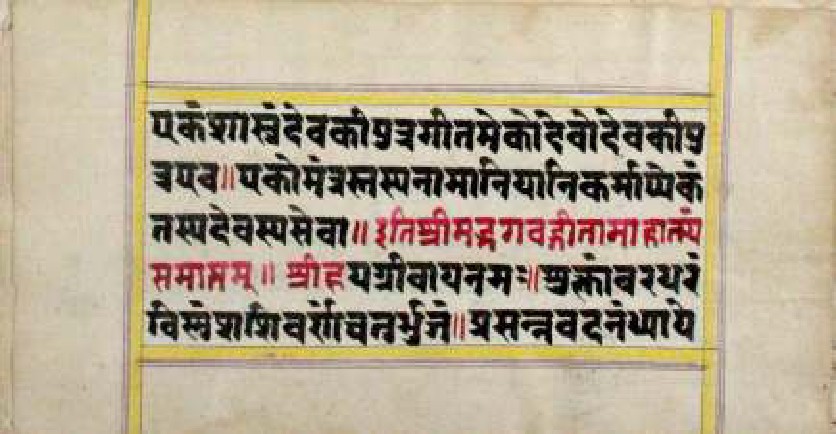 एकंशास्त्रंदेवकीपुत्रगीतमेकोदेवोदेवकीपु
त्रएव॥एकोमंत्रस्तस्यनामानियानिकर्माप्येकं
तस्यदेवस्यसेवा॥इतिश्रीमद्भगवद्गीतामाहात्म्यं
समाप्तम्॥श्रीहयग्रीवायनमः॥शुक्लांबरधरं
विस्नंशशिवर्णंचतर्भुजं॥प्रसन्नवदनंध्याये